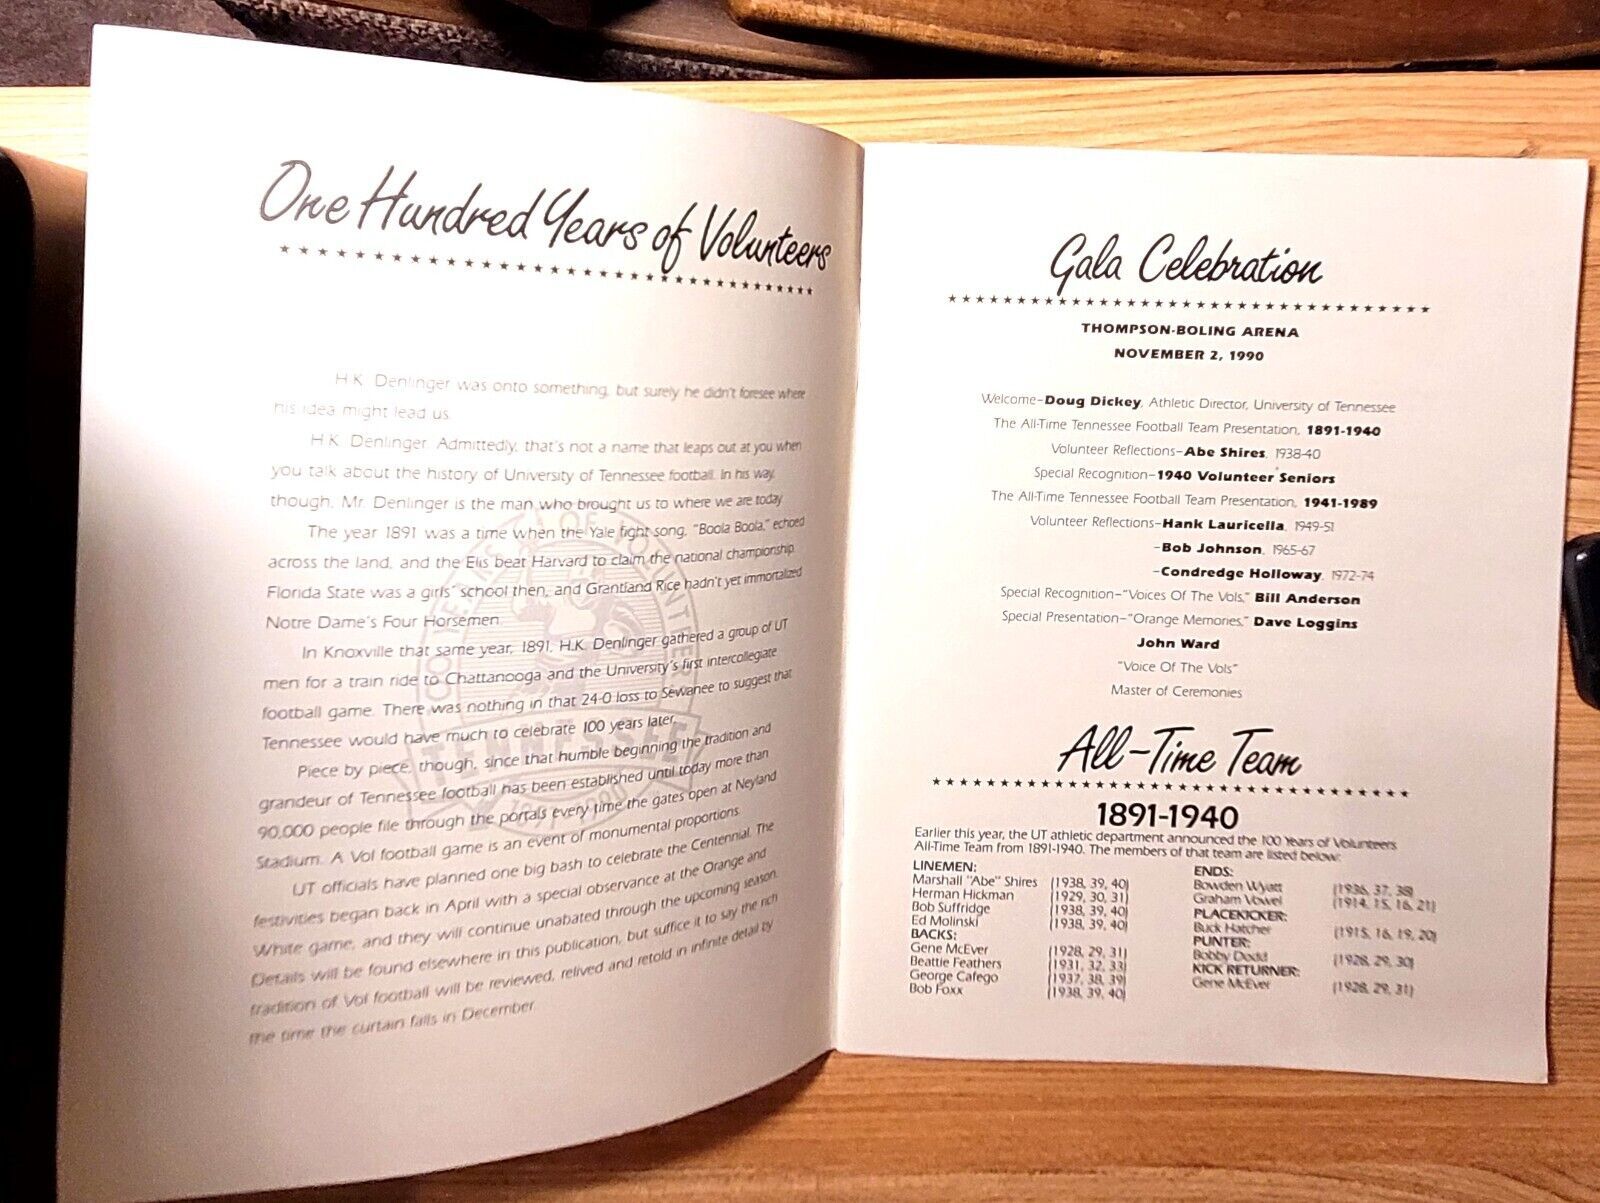 One Hundred Years of Volunteers
H.K. Denlinger was onto something, but surely he didn't foresee where
his idea might lead us.
H.K. Denlinger. Admittedly, that's not a name that leaps out at you when
you talk about the history of University of Tennessee football. In his way,
though, Mr. Denlinger is the man who brought us to where we are today.
The year 1891 was a time when the Yale fight song, "Boola Boola," echoed
across the land, and the Elis beat Harvard to claim the national championship.
Florida State was a girls' school then, and Grantland Rice hadn't yet immortalized
Notre Dame's Four Horsemen.
In Knoxville that same year, 1891, H.K. Denlinger gathered a group of UT
men for a train ride to Chattanooga and the University's first intercollegiate
football game. There was nothing in that 24-0 loss to Sewanee to suggest that
Tennessee would have much to celebrate 100 years later.
Piece by piece, though, since that humble beginning the tradition and
grandeur of Tennessee football has been established until today more than
90,000 people file through the portals every time the gates open at Neyland
Stadium. A Vol football game is an event of monumental proportions.
UT officials have planned one big bash to celebrate the Centennial. The
festivities began back in April with a special observance at the Orange and
White game, and they will continue unabated through the upcoming season.
Details will be found elsewhere in this publication, but suffice it to say the rich
tradition of Vol football will be reviewed, relived and retold in infinite detail by
the time the curtain falls in December.
TENNESSEE
Gala Celebration
THOMPSON-BOLING ARENA
NOVEMBER 2, 1990
Welcome–Doug Dickey, Athletic Director, University of Tennessee
The All-Time Tennessee Football Team Presentation, 1891-1940
Volunteer Reflections–Abe Shires, 1938-40
Special Recognition–1940 Volunteer Seniors
The All-Time Tennessee Football Team Presentation, 1941-1989
Volunteer Reflections–Hank Lauricella, 1949-51
–Bob Johnson, 1965-67
–Condredge Holloway, 1972-74
Special Recognition–"Voices Of The Vols," Bill Anderson
Special Presentation–"Orange Memories," Dave Loggins
John Ward
"Voice Of The Vols"
Master of Ceremonies
All-Time Team
1891-1940
Earlier this year, the UT athletic department announced the 100 Years of Volunteers
All-Time Team from 1891-1940. The members of that team are listed below:
LINEMEN:
Marshall "Abe" Shires (1938, 39, 40)
Herman Hickman (1929, 30, 31)
Bob Suffridge (1938, 39, 40)
Ed Molinski (1938, 39, 40)
BACKS:
Gene McEver (1928, 29, 31)
Beattie Feathers (1931, 32, 33)
George Cafego (1937, 38, 39)
Bob Foxx (1938, 39, 40)
ENDS:
Bowden Wyatt (1936, 37, 38)
Graham Vowel (1914, 15, 16, 21)
PLACEKICKER:
Buck Hatcher (1915, 16, 19, 20)
PUNTER:
Bobby Dodd (1928, 29, 30)
KICK RETURNER:
Gene McEver (1928, 29, 31)